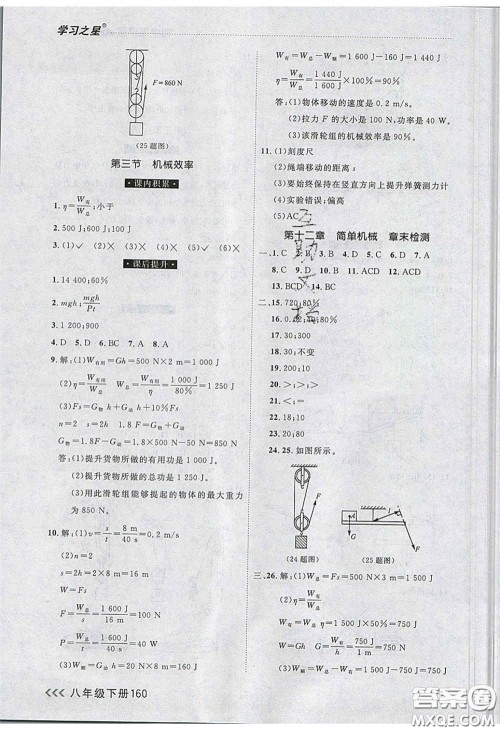 学习之星®
F=860 N
(25题图)
第三节 机械效率
课内积累
1. η=W有/W总;小于
2. 500 J;600 J;100 J
3. (1)✓ (2)× (3)× (4)× (5)× (6)✓
课后提升
1. 14 400;60%
2. mgh;mgh/Pt
3. 1 200;900
4. D 5. D 6. BC 7. A 8. A
9. 解:(1)W有用=Gh=500 N×2 m=1 000 J
(2)η=W有用/W总 W总=W有用/η=1 000 J/80%=1 250 J
(3)W总=W有用+W额外
Fs=G物 h+G动 h+10%Fs
n=2 s=2h F=G人
G物=1.8F-G动=1.8×500 N-50 N=850 N
答:(1)提升货物所做的有用功是 1 000 J。
(2)提升货物所做的总功是 1 250 J。
(3)用此滑轮组能够提起的物体的最大重力
为 850 N。
10. 解:(1)v=s/t=8 m/40 s=0.2 m/s
(2)n=2
s=2h=2×8 m=16 m
W总=Fs
F=W总/s=1 600 J/16 m=100 N
P=W总/t=1 600 J/40 s=40 W
(3)W额=10%W总=10%×1 600 J=160 J
W有=W总-W额=1 600 J-160 J=1 440 J
η=W有/W总=1 440 J/1 600 J×100%=90%
答:(1)物体移动的速度是 0.2 m/s。
(2)拉力 F 的大小是 100 N,功率是 40 W。
(3)该滑轮组的机械效率是 90%。
11. (1)刻度尺
(2)绳端移动的距离 s
(3)要始终保持在竖直方向上提升弹簧测力计
(4)实验错误;高
(5)AC
第十二章 简单机械 章末检测
一、1. C 2. B 3. B 4. D 5. A 6. C 7. D
8. C 9. D 10. B 11. AD 12. ACD
13. BCD 14. ACD
二、15. 720;80%
16. 0.12;4;80%
17. 20
18. 30;不变
19. 20;80
20. >;>;>
21. <;=
22. 18;10
23. 20;80
24. 25. 如图所示。
F
(24题图)
A
G
l
F
(25题图)
三、26. 解:(1)W总=Fs=500 N×3 m=1 500 J
(2)η=W有/W总
W有=ηW总=50%×1 500 J=750 J
W有=Gh G=W有/h=750 J/1 m=750 N
(3)W额=W总-W有=1 500 J-750 J=750 J
八年级下册160
答案圈
MXQE.COM